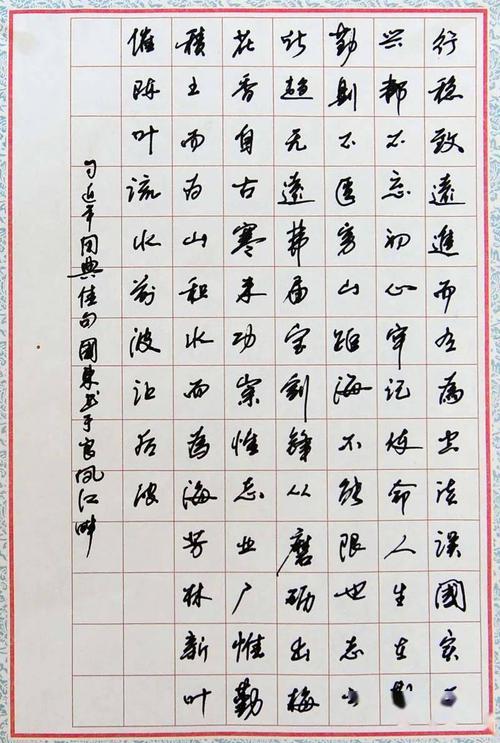 行稳致遠進而有為空谈误國实
兴邦不忘初心牢记使命人生在
勤則不匮穷山距海不能限也志
所趋无遠弗届宝剑锋从磨砺出梅
花香自古寒来功崇惟志业广惟勤
積土而为山积水而為海芳林新叶
催陈叶流水前波让后波
习近平用典佳句國東书于凤江畔